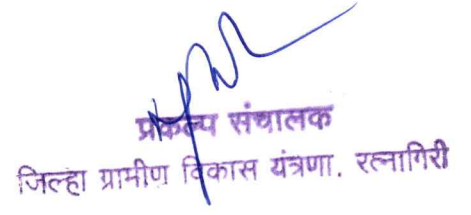 प्रकल्प संचालक
जिल्हा ग्रामीण विकास यंत्रणा. रत्नागिरी